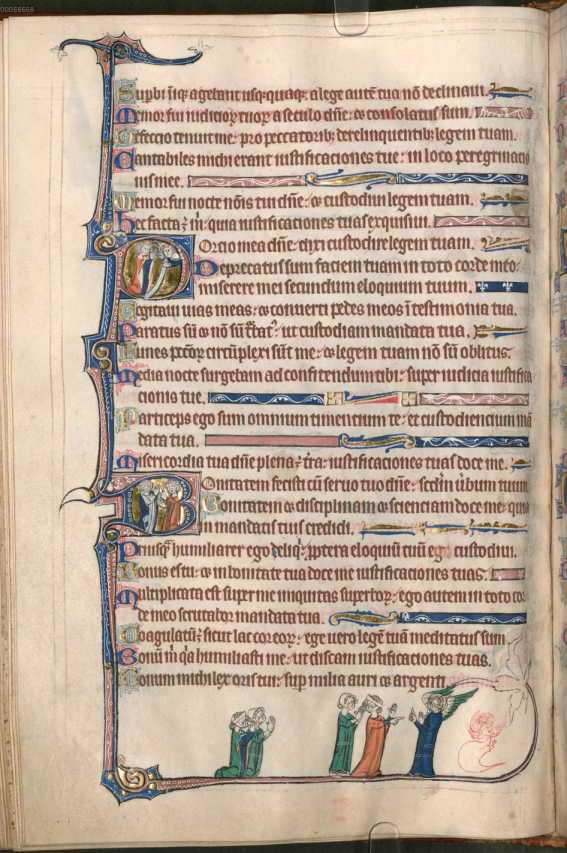 00066666
Supbi iniq; agebant usq;quaq; a lege aute tua no declinaui.
Memor fui iudicior tuor a seculo dne: et consolatus sum.
Defectio tenuit me: pro peccatorib; derelinquentib; legem tuam.
Cantabiles michi erant iustificaciones tue: in loco peregrinacio
nis mee.
Memor fui nocte nois tui dne: et custodiui legem tuam.
Hec facta e m: quia iustificaciones tuas exquisiui.
Porcio mea dne: dixi custodire legem tuam.
Deprecatus sum faciem tuam in toto corde meo:
miserere mei secundum eloquium tuum.
Cogitaui uias meas: et conuerti pedes meos i testimonia tua.
Paratus su et no su turbat: ut custodiam mandata tua.
Funes pctor circuplexi sut me: et legem tuam no su oblitus.
Media nocte surgebam ad confitendum tibi: super iudicia iustifica
cionis tue.
Particeps ego sum omnium timencium te: et custodiencium man
data tua.
Misericordia tua dne plena e tra: iustificaciones tuas doce me.
Bonitatem fecisti cu seruo tuo dne: scdm ubum tuum
Bonitatem et disciplinam et scienciam doce me: quia
in mandatis tuis credidi.
Priusq humiliarer ego deliq: ppterea eloquiu tuu ego custodiui.
Bonus es tu: et in bonitate tua doce me iustificaciones tuas.
Multiplicata est super me iniquitas superbor: ego autem in toto cor
de meo scrutabor mandata tua.
Coagulatu e sicut lac cor eor: ego uero lege tua meditatus sum.
Bonu m qa humiliasti me: ut discam iustificaciones tuas.
Bonum michi lex oris tui: sup milia auri et argenti.